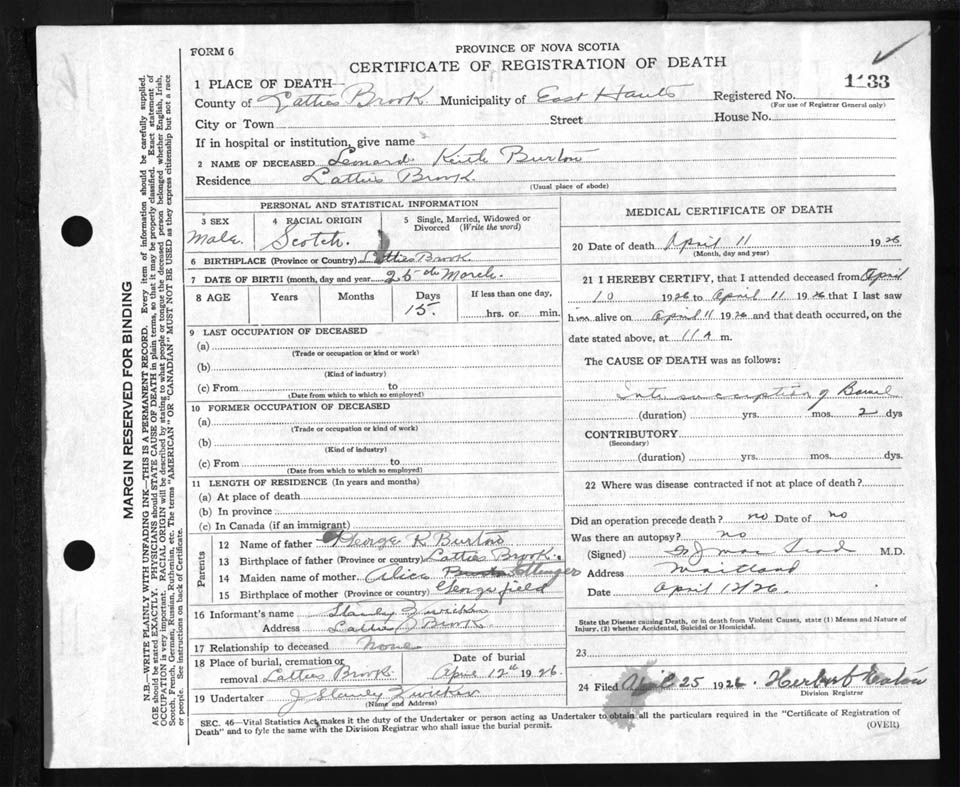 FORM 6
PROVINCE OF NOVA SCOTIA
CERTIFICATE OF REGISTRATION OF DEATH
1133
1 PLACE OF DEATH
County of Latties Brook. Municipality of East Hants Registered No.
(For use of Registrar General only)
City or Town Street House No.
If in hospital or institution, give name
2 NAME OF DECEASED Leonard Keith Burton
Residence Latties Brook.
(Usual place of abode)
PERSONAL AND STATISTICAL INFORMATION
3 SEX 4 RACIAL ORIGIN 5 Single, Married, Widowed or Divorced (Write the word)
Male. Scotch.
6 BIRTHPLACE (Province or Country) Latties Brook
7 DATE OF BIRTH (month, day and year) 26th March.
8 AGE Years Months Days If less than one day,
15. hrs. or min.
9 LAST OCCUPATION OF DECEASED
(a)
(Trade or occupation or kind or work)
(b)
(Kind of industry)
(c) From to
(Date from which to which so employed)
10 FORMER OCCUPATION OF DECEASED
(a)
(Trade or occupation or kind of work)
(b)
(Kind of industry)
(c) From to
(Date from which to which so employed)
11 LENGTH OF RESIDENCE (In years and months)
(a) At place of death
(b) In province
(c) In Canada (if an immigrant)
Parents
12 Name of father George R Burton
13 Birthplace of father (Province or country) Latties Brook.
14 Maiden name of mother Alice Ettinger
15 Birthplace of mother (Province or country) Georgefield
16 Informant's name Stanley Zwicker
Address Latties Brook
17 Relationship to deceased None
18 Place of burial, cremation or removal Latties Brook Date of burial April 12th 1926
19 Undertaker J Stanley Zwicker
(Name and Address)
MEDICAL CERTIFICATE OF DEATH
20 Date of death April 11 1926
(Month, day and year)
21 I HEREBY CERTIFY, that I attended deceased from April
10 1926 to April 11 1926 that I last saw
him alive on April 11 1926 and that death occurred, on the
date stated above, at 11 A m.
The CAUSE OF DEATH was as follows:
Intussusception of Bowel
(duration) yrs. mos. 2 dys
CONTRIBUTORY
(Secondary)
(duration) yrs. mos. dys.
22 Where was disease contracted if not at place of death?
Did an operation precede death? no Date of no
Was there an autopsy? no
(Signed) M.D.
Address Maitland
Date April 12/26.
State the Disease causing Death, or in death from Violent Causes, state (1) Means and Nature of
Injury, (2) whether Accidental, Suicidal or Homicidal.
23
24 Filed April 25 1926. Herbert
Division Registrar
SEC. 46—Vital Statistics Act makes it the duty of the Undertaker or person acting as Undertaker to obtain all the particulars required in the "Certificate of Registration of
Death" and to fyle the same with the Division Registrar who shall issue the burial permit.
(OVER)
MARGIN RESERVED FOR BINDING
N.B.—WRITE PLAINLY WITH UNFADING INK—THIS IS A PERMANENT RECORD. Every item of information should be carefully supplied.
AGE should be stated EXACTLY. PHYSICIANS should STATE CAUSE OF DEATH in plain terms, so that it may be properly classified. Exact statement of
OCCUPATION is very important. RACIAL ORIGIN will be described by stating to what people or tongue the deceased person belonged whether English, Irish,
Scotch, French, German, Russian, Ruthenian, etc. The terms "AMERICAN" OR "CANADIAN" MUST NOT BE USED as they express citizenship but not a race
or people. See instructions on back of Certificate.